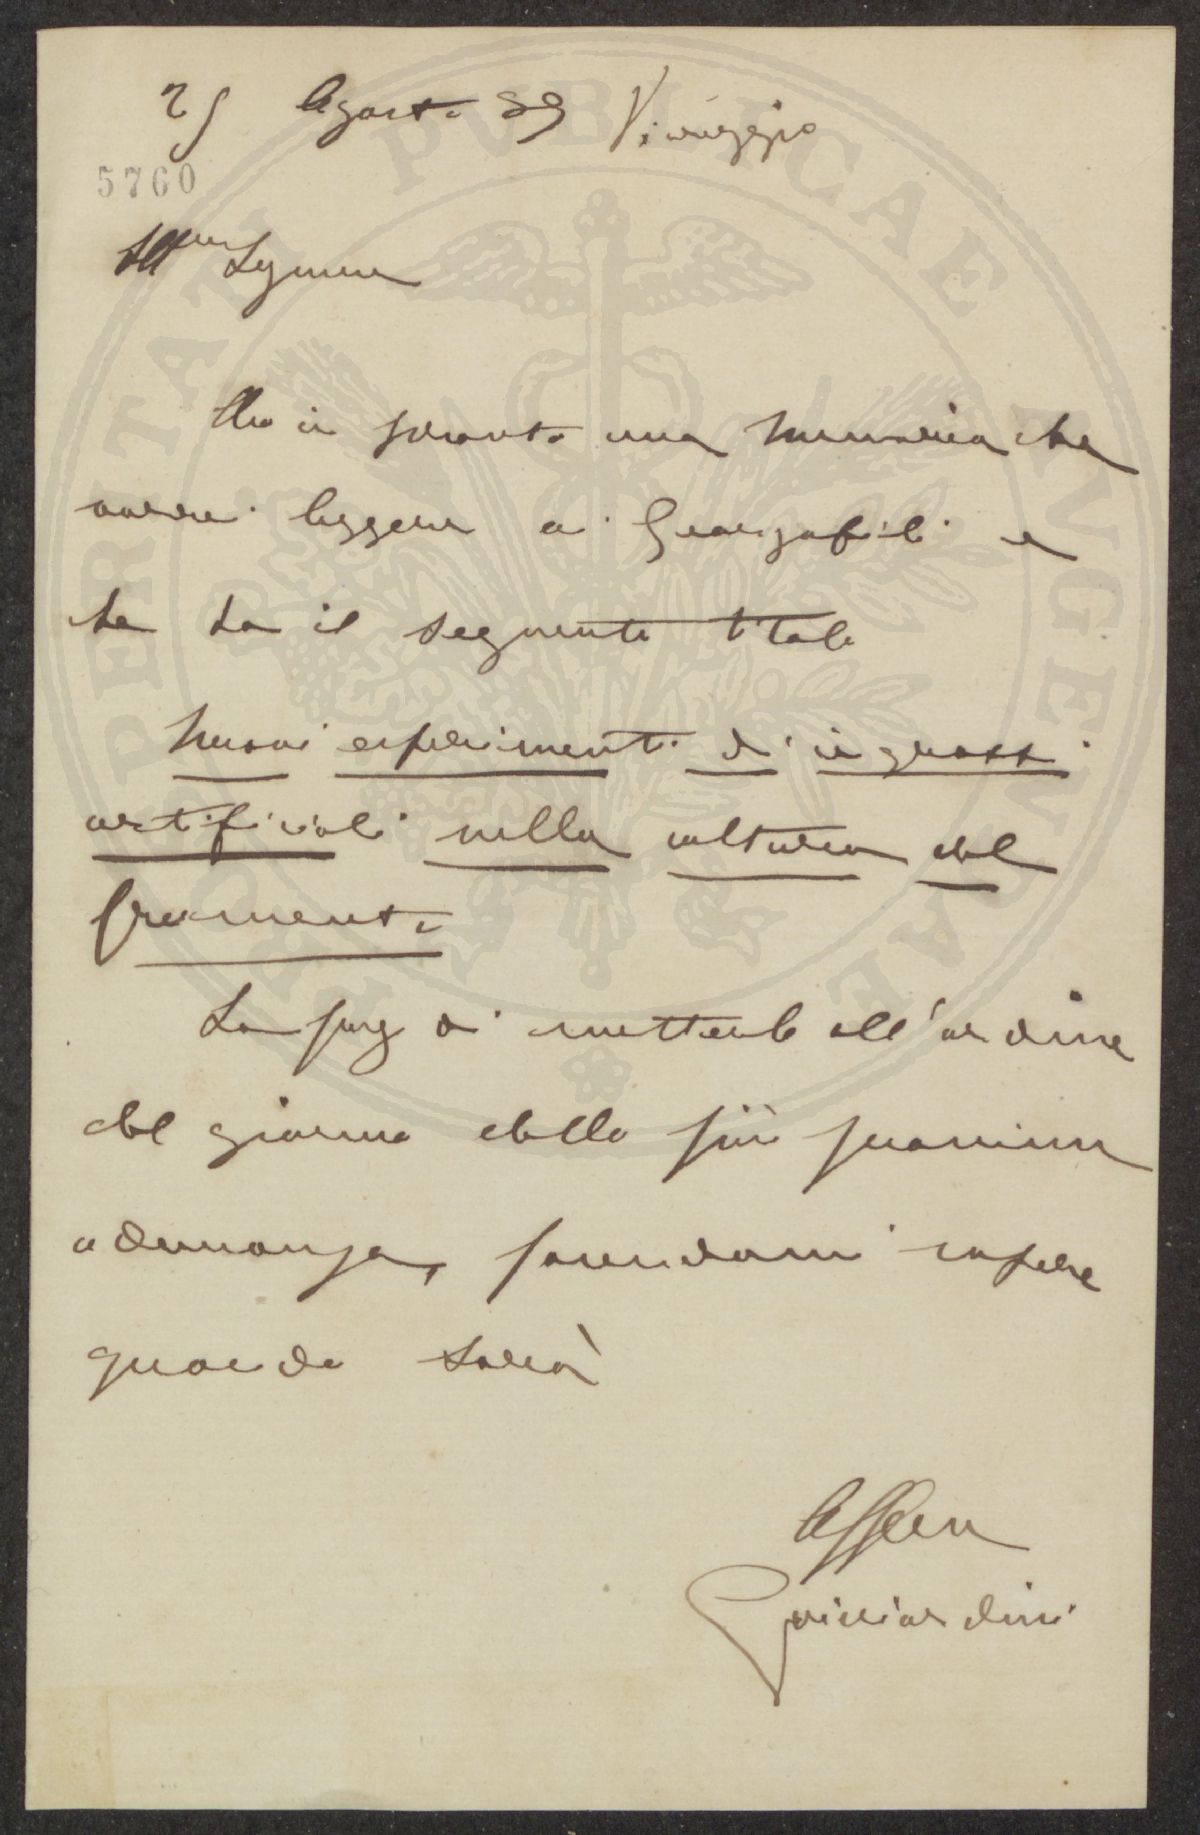 25 Agosto 89 Viareggio
5760
Ill.mo Signore
Ho in pronto una memoria che
vorrei leggere ai Georgofili e
che ha il seguente titolo
Nuovi esperimenti di ingrassi
artificiali nella coltura del
frumento
La prego di metterlo all'ordine
del giorno della più prossima
adunanza, facendomi sapere
quando sarà
Guicciardini
PROSPERITATI PVBLICAE AVGENDAE